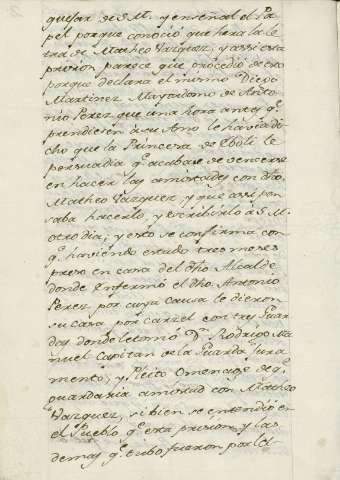 quejar de S. M. y enseñal el Pa
pel porque conoció que hera la le
tra de Matheo Vazquez, y assi esta
prision parece que procedió de eso
porque declara el mismo Diego
Martinez Mayordomo de Anto
nio Perez que una hora antes q.e
prendiesen à su Amo le havia di
cho que la Princesa de Eboli le
persuadia q.e acabase de vencerse
en hacer las amistades con dho.
Matheo Vazquez, y que assi pen
saba hacerlo, y escribirlo à S. M.
otro dia; y esto se confirma con
q.e haviendo estado tres meses
preso en casa del dho Alcalde
donde enfermó el dho. Antonio
Perez por cuya causa le dieron
su casa por carzel con tres Guar
das donde le tomó D.n Rodrigo Ma
nuel Capitan de la Guarda Jura
mento, y Pleito Omenage de q.e
guardaria amistad con Matheo
Vazquez, si bien se entendió en
el Pueblo q.e esta prision y las
demas q.e tubo fueron por la